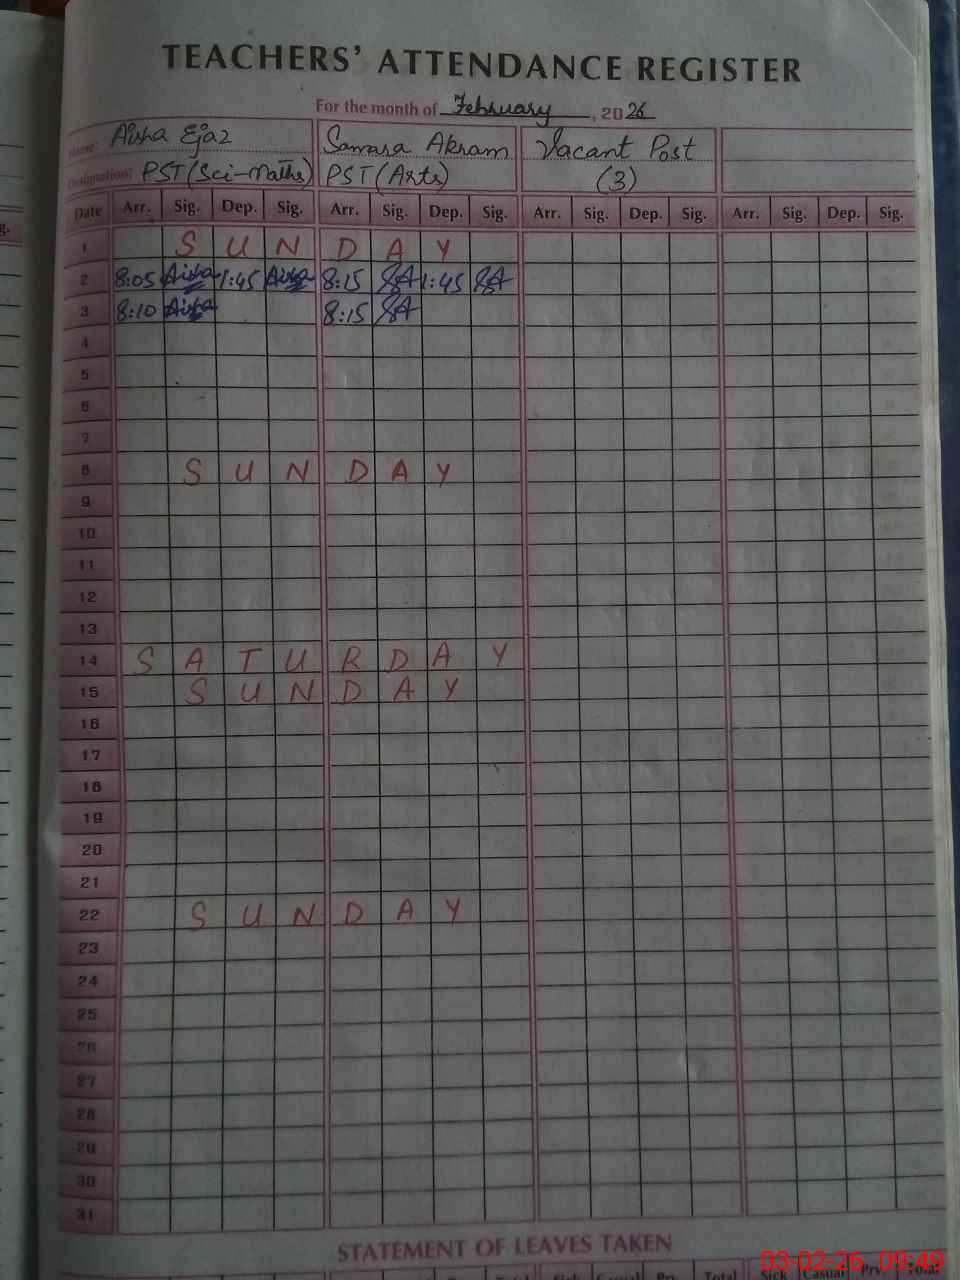 TEACHERS' ATTENDANCE REGISTER
For the month of February, 2026
Name: Aisha Ejaz Samara Akram Vacant Post
Designation: PST (Sci-Maths) PST (Arts) (3)
Date Arr. Sig. Dep. Sig. Arr. Sig. Dep. Sig. Arr. Sig. Dep. Sig. Arr. Sig. Dep. Sig.
1 S U N D A Y
2 8:05 Aisha 1:45 Aisha 8:15 SA 1:45 SA
3 8:10 Aisha 8:15 SA
4
5
6
7
8 S U N D A Y
9
10
11
12
13
14 S A T U R D A Y
15 S U N D A Y
16
17
18
19
20
21
22 S U N D A Y
23
24
25
26
27
28
29
30
31
STATEMENT OF LEAVES TAKEN
03-02-26 09:49
Sick Casual Total Sick Casual Prv. Total